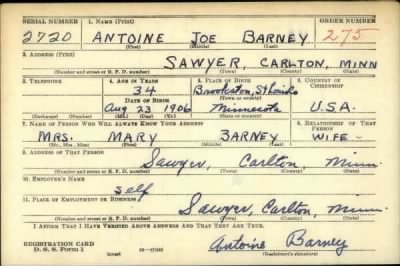 SERIAL NUMBER 1. Name (Print) ORDER NUMBER
2720 ANTOINE JOE BARNEY 275
(First) (Middle) (Last)
2. Address (Print)
SAWYER, CARLTON, MINN
(Number and street or R. F. D. number) (Town) (County) (State)
3. Telephone 4. Age in Years 5. Place of Birth 6. Country of Citizenship
34 Brookston, St Louis
Date of Birth (Town or county)
Aug 23 1906 Minnesota U.S.A.
(Exchange) (Number) (Mo.) (Day) (Yr.) (State or country)
7. Name of Person Who Will Always Know Your Address 8. Relationship of That Person
MRS. MARY BARNEY WIFE
(Mr., Mrs., Miss) (First) (Middle) (Last)
9. Address of That Person
Sawyer, Carlton, Minn.
(Number and street or R. F. D. number) (Town) (County) (State)
10. Employer's Name
Self
11. Place of Employment or Business
Sawyer, Carlton, Minn.
(Number and street or R. F. D. number) (Town) (County) (State)
I Affirm That I Have Verified Above Answers and That They Are True.
REGISTRATION CARD
D. S. S. Form 1 Antoine Barney
(over) (Registrant's signature)